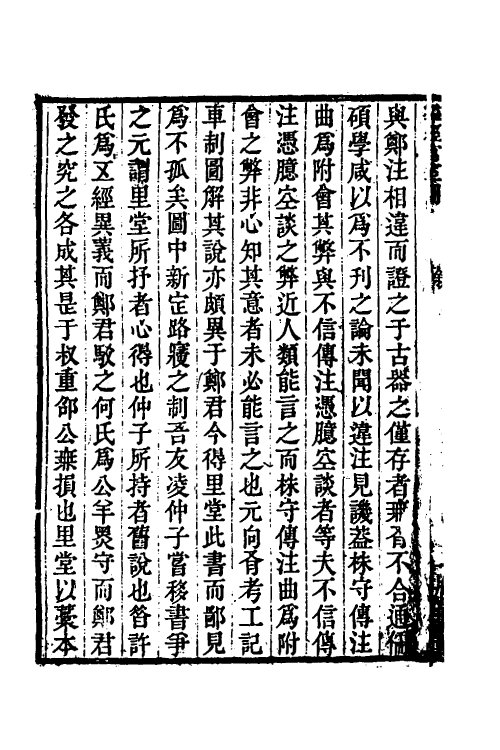 與鄭注相違而證之于古器之僅存者無有不合通儒
碩學咸以爲不刊之論未聞以違注見譏葢株守傳注
曲爲附會其弊與不信傳注憑臆空談者等夫不信傳
注憑臆空談之弊近人類能言之而株守傳注曲爲附
會之弊非心知其意者未必能言之也元向𦙍考工記
車制圖解其說亦頗異于鄭君今得里堂此書而鄙見
爲不孤矣圖中新定路寢之制吾友凌仲子嘗移書爭
之元謂里堂所抒者心得也仲子所持者舊說也昝許
氏爲五經異義而鄭君駁之何氏爲公羊墨守而鄭君
發之究之各成其是于叔重邵公無損也里堂以藁本